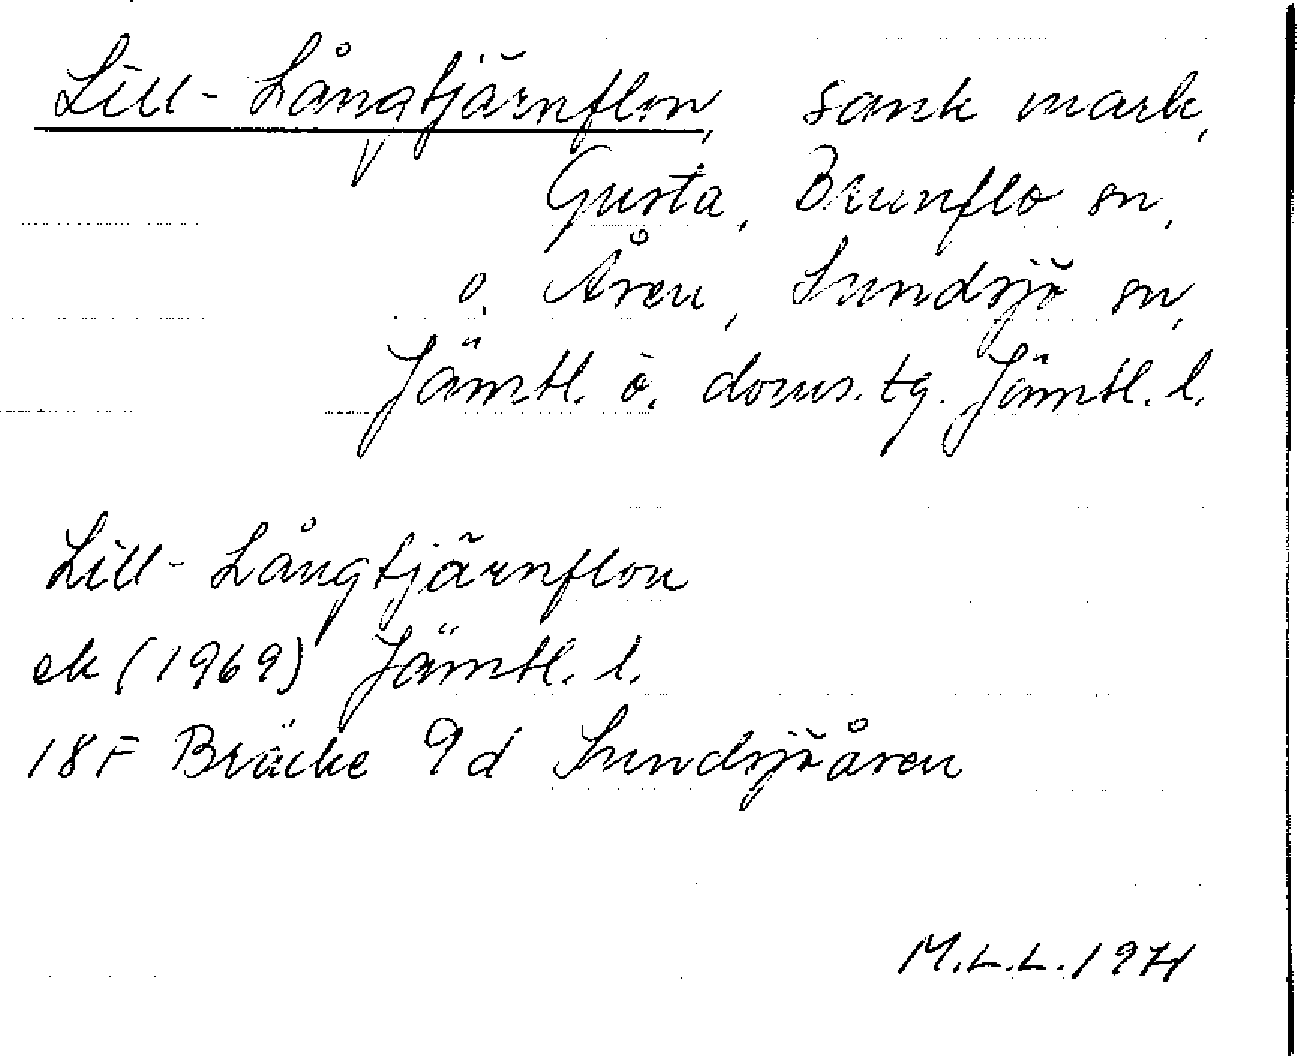 Lill-Långtjärnflon, sank mark,
Gusta, Brunflo sn,
o. Åren, Sundsjö sn,
Jämtl. ö. doms.tg. Jämtl. l.
Lill-Långtjärnflon
ek (1969) Jämtl. l.
18F Bräcke 9d Sundsjöåren
M.L.L. 1971